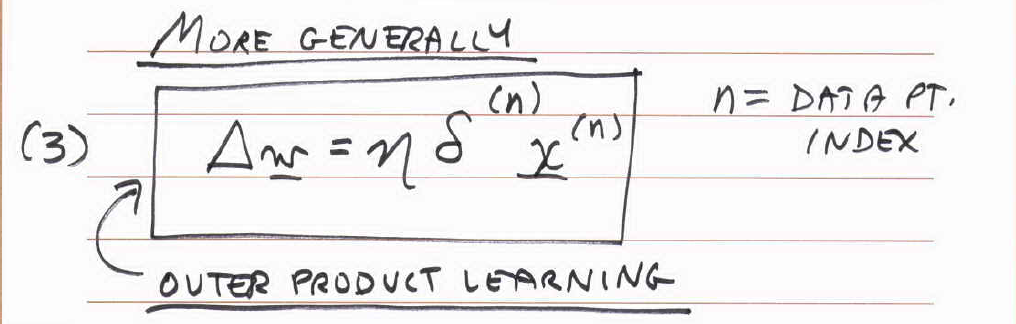 MORE GENERALLY
(3) Δw = η δ^(n) x^(n) n = DATA PT.
INDEX
OUTER PRODUCT LEARNING